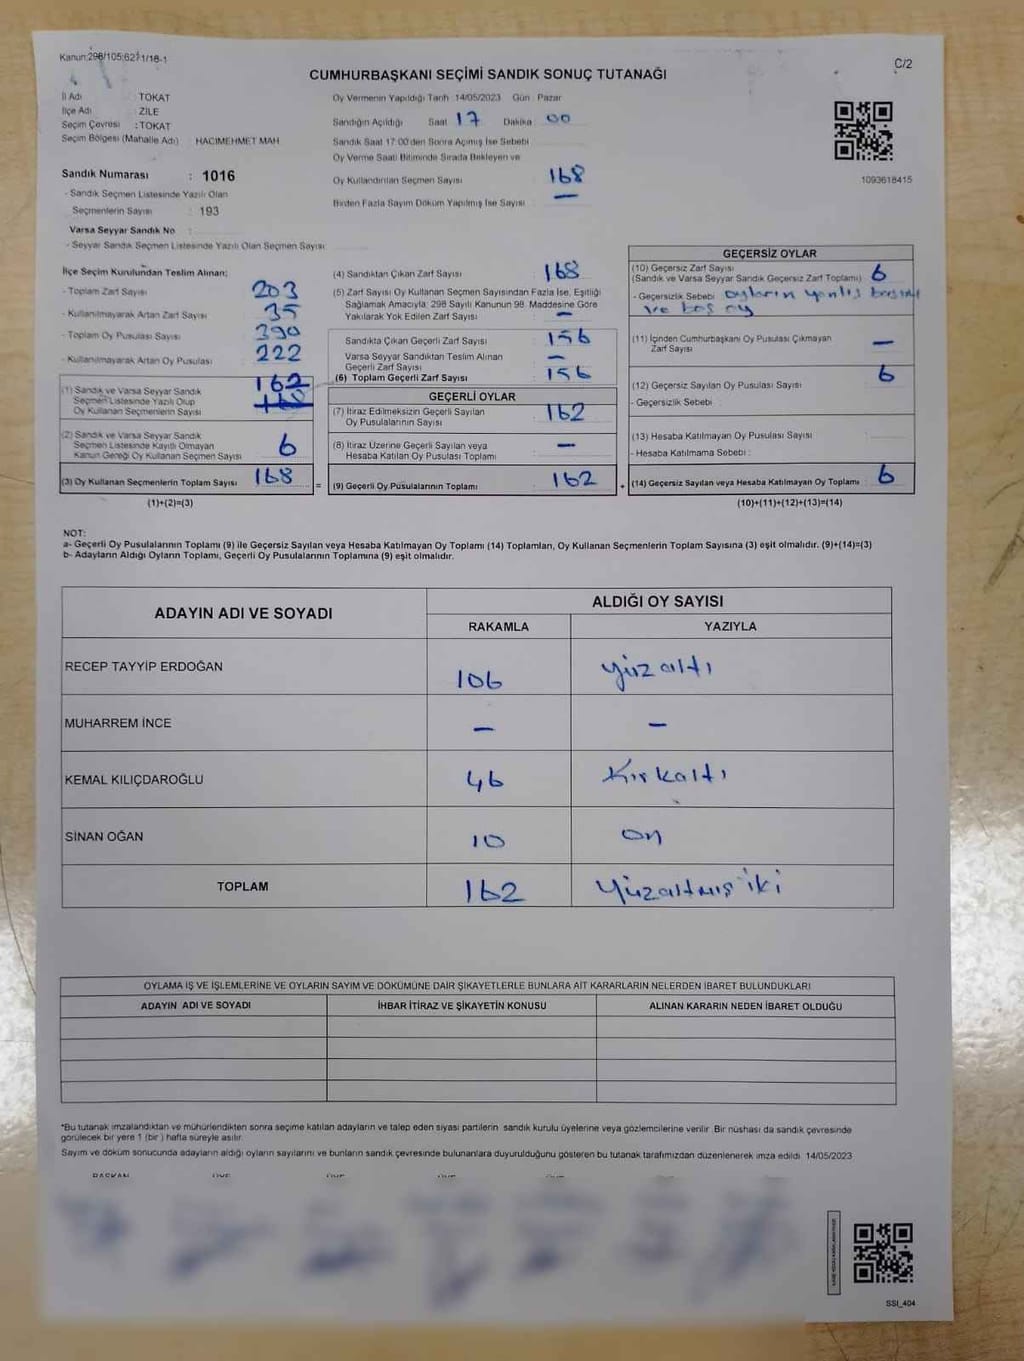 Kanun:298/105;62;1/18-1
C/2
CUMHURBAŞKANI SEÇİMİ SANDIK SONUÇ TUTANAĞI
İl Adı : TOKAT
İlçe Adı : ZİLE
Seçim Çevresi : TOKAT
Seçim Bölgesi (Mahalle Adı) : HACIMEHMET MAH
Sandık Numarası : 1016
- Sandık Seçmen Listesinde Yazılı Olan
Seçmenlerin Sayısı : 193
Varsa Seyyar Sandık No :
- Seyyar Sandık Seçmen Listesinde Yazılı Olan Seçmen Sayısı :
Oy Vermenin Yapıldığı Tarih 14/05/2023 Gün Pazar
Sandığın Açıldığı Saat 17 Dakika 00
Sandık Saat 17:00'den Sonra Açılmış İse Sebebi
Oy Verme Saati Bitiminde Sırada Bekleyen ve
Oy Kullandırılan Seçmen Sayısı 168
Birden Fazla Sayım Döküm Yapılmış İse Sayısı : —
1093618415
İlçe Seçim Kurulundan Teslim Alınan;
- Toplam Zarf Sayısı : 203
- Kullanılmayarak Artan Zarf Sayısı : 35
- Toplam Oy Pusulası Sayısı : 390
- Kullanılmayarak Artan Oy Pusulası : 222
(1) Sandık ve Varsa Seyyar Sandık 162
Seçmen Listesinde Yazılı Olup 168
Oy Kullanan Seçmenlerin Sayısı
(2) Sandık ve Varsa Seyyar Sandık
Seçmen Listesinde Kayıtlı Olmayan 6
Kanun Gereği Oy Kullanan Seçmen Sayısı
(3) Oy Kullanan Seçmenlerin Toplam Sayısı : 168
(1)+(2)=(3)
(4) Sandıktan Çıkan Zarf Sayısı : 168
(5) Zarf Sayısı Oy Kullanan Seçmen Sayısından Fazla İse, Eşitliği
Sağlamak Amacıyla, 298 Sayılı Kanunun 98. Maddesine Göre
Yakılarak Yok Edilen Zarf Sayısı : —
Sandıkta Çıkan Geçerli Zarf Sayısı : 156
Varsa Seyyar Sandıktan Teslim Alınan
Geçerli Zarf Sayısı : —
(6) Toplam Geçerli Zarf Sayısı : 156
GEÇERLİ OYLAR
(7) İtiraz Edilmeksizin Geçerli Sayılan
Oy Pusulalarının Sayısı : 162
(8) İtiraz Üzerine Geçerli Sayılan veya
Hesaba Katılan Oy Pusulası Toplamı : —
= (9) Geçerli Oy Pusulalarının Toplamı : 162
GEÇERSİZ OYLAR
(10) Geçersiz Zarf Sayısı
(Sandık ve Varsa Seyyar Sandık Geçersiz Zarf Toplamı) : 6
- Geçersizlik Sebebi : oyların yanlış
ve boş oy
(11) İçinden Cumhurbaşkanı Oy Pusulası Çıkmayan
Zarf Sayısı : —
(12) Geçersiz Sayılan Oy Pusulası Sayısı : 6
- Geçersizlik Sebebi :
(13) Hesaba Katılmayan Oy Pusulası Sayısı :
- Hesaba Katılmama Sebebi :
+ (14) Geçersiz Sayılan veya Hesaba Katılmayan Oy Toplamı : 6
(10)+(11)+(12)+(13)=(14)
NOT:
a- Geçerli Oy Pusulalarının Toplamı (9) ile Geçersiz Sayılan veya Hesaba Katılmayan Oy Toplamı (14) Toplamları, Oy Kullanan Seçmenlerin Toplam Sayısına (3) eşit olmalıdır. (9)+(14)=(3)
b- Adayların Aldığı Oyların Toplamı, Geçerli Oy Pusulalarının Toplamına (9) eşit olmalıdır.
ADAYIN ADI VE SOYADI
ALDIĞI OY SAYISI
RAKAMLA YAZIYLA
RECEP TAYYİP ERDOĞAN 106 Yüz altı
MUHARREM İNCE — —
KEMAL KILIÇDAROĞLU 46 Kırkaltı
SİNAN OĞAN 10 on
TOPLAM 162 Yüzaltmış iki
OYLAMA İŞ VE İŞLEMLERİNE VE OYLARIN SAYIM VE DÖKÜMÜNE DAİR ŞİKAYETLERLE BUNLARA AİT KARARLARIN NELERDEN İBARET BULUNDUKLARI
ADAYIN ADI VE SOYADI İHBAR İTİRAZ VE ŞİKAYETİN KONUSU ALINAN KARARIN NEDEN İBARET OLDUĞU
*Bu tutanak imzalandıktan ve mühürlendikten sonra seçime katılan adayların ve talep eden siyasi partilerin sandık kurulu üyelerine veya gözlemcilerine verilir. Bir nüshası da sandık çevresinde
görülecek bir yere 1 (bir ) hafta süreyle asılır.
Sayım ve döküm sonucunda adayların aldığı oyların sayılarını ve bunların sandık çevresinde bulunanlara duyurulduğunu gösteren bu tutanak tarafımızdan düzenlenerek imza edildi. 14/05/2023
BAŞKAN ÜYE ÜYE ÜYE ÜYE
SSI_404